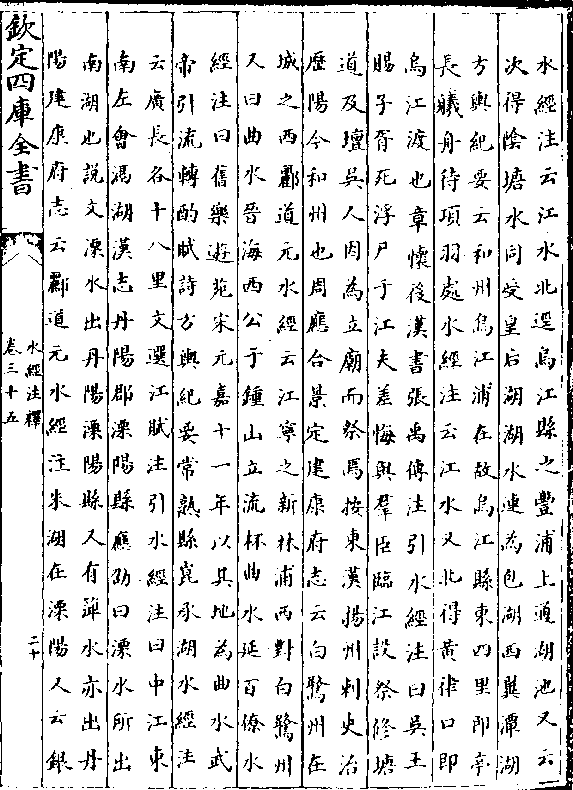 水經注云江水北逕烏江縣之豐浦上通湖池又云
次得陰塘水同受皇后湖湖水連為包湖西冀潭湖
方輿紀要云和州烏江浦在故烏江縣東四里即亭
長艤舟待項羽處水經注云江水又北得黃律口即
烏江渡也章懷後漢書張禹傳注引水經注曰吳王
賜子胥死浮尸于江夫差悔與羣臣臨江設祭修塘
道及壇吳人因為立廟而祭焉按東漢揚州刺史治
歷陽今和州也周應合景定建康府志云白鷺州在
城之西酈道元水經云江寧之新林浦西對白鷺州
又曰曲水晉海西公于鍾山立流杯曲水延百僚水
經注曰舊樂遊苑宋元嘉十一年以其地為曲水武
帝引流轉酌賦詩方輿紀要常熟縣崑承湖水經注
云廣長各十八里文選江賦注引水經注曰中江東
南左會滆湖漢志丹陽郡溧陽縣應劭曰溧水所出
南湖也說文溧水出丹陽溧陽縣又有箄水亦出丹
陽建康府志云酈道元水經注朱湖在溧陽又云銀
欽定四庫全書
水經注釋
卷三十五
二十